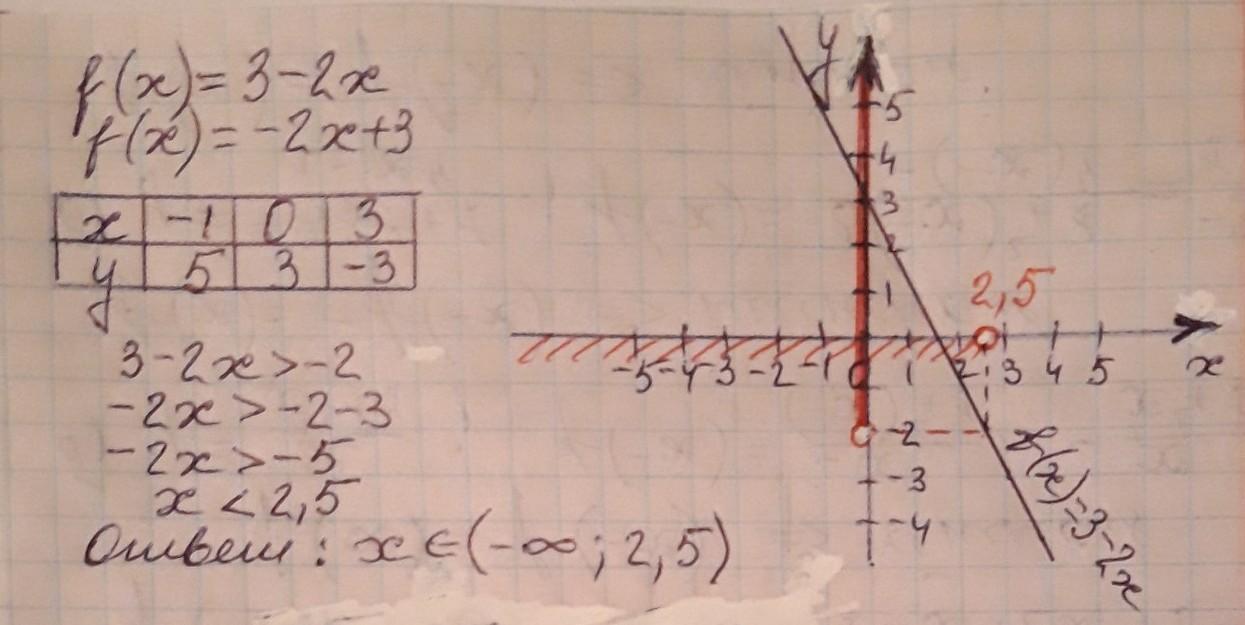 f(x)=3-2x
f(x)=-2x+3
x -1 0 3
y 5 3 -3
3-2x>-2
-2x>-2-3
-2x>-5
x<2,5
Ответ: x∈(-∞; 2,5)
y
5
4
3
2
1
2,5
-5 -4 -3 -2 -1 0 1 2 3 4 5 x
-2
-3
-4
f(x)=3-2x